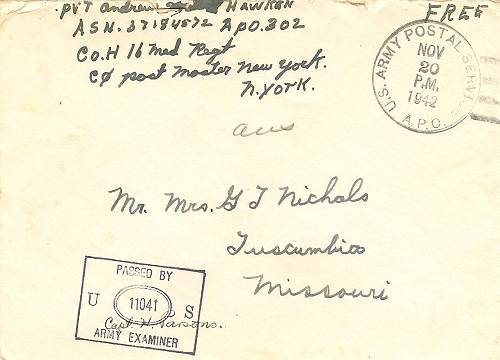 PVT andrew HAWKEN
ASN. 37184572 APO. 302
Co. H 16 Med Regt
C/o post master New York.
N. York.
FREE
U.S. ARMY POSTAL SERVICE
NOV
20
P.M.
1942
A.P.O.
ans
Mr. Mrs. G T Nichols
Tuscumbia
Missouri
PASSED BY
U 11041 S
Capt. H. Parsons.
ARMY EXAMINER